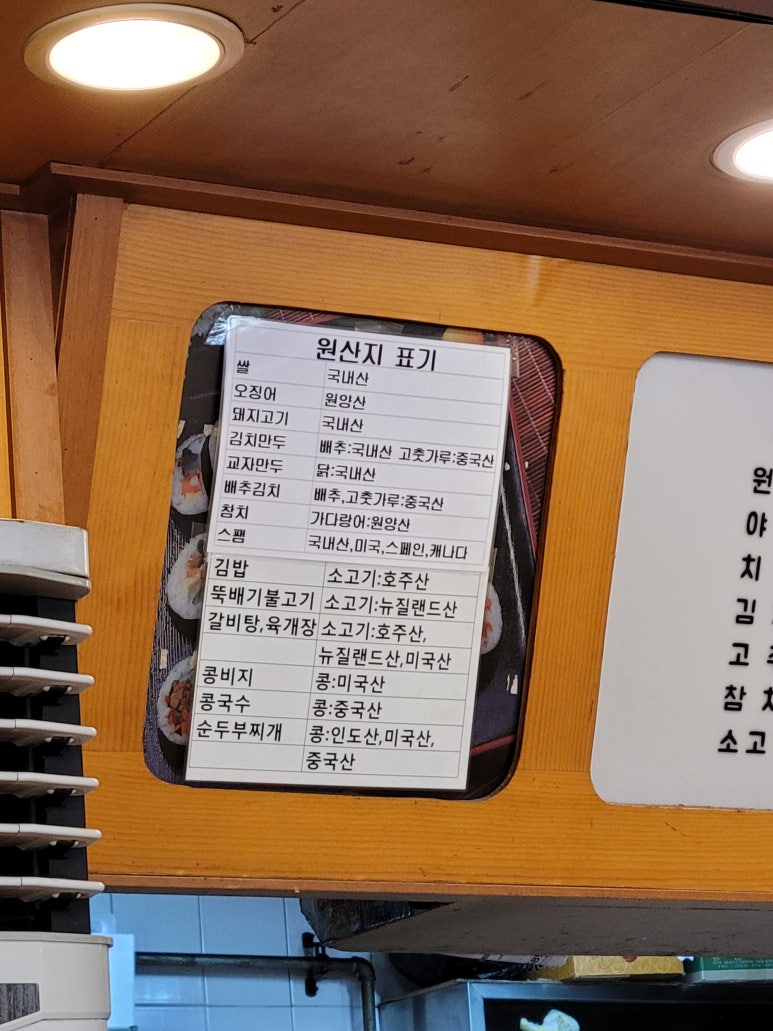 원산지 표기
쌀 국내산
오징어 원양산
돼지고기 국내산
김치만두 배추:국내산 고춧가루:중국산
교자만두 닭:국내산
배추김치 배추,고춧가루:중국산
참치 가다랑어:원양산
스팸 국내산,미국,스페인,캐나다
김밥 소고기:호주산
뚝배기불고기 소고기:뉴질랜드산
갈비탕,육개장 소고기:호주산,
뉴질랜드산,미국산
콩비지 콩:미국산
콩국수 콩:중국산
순두부찌개 콩:인도산,미국산,
중국산
원
야
치
김
고
참
소고